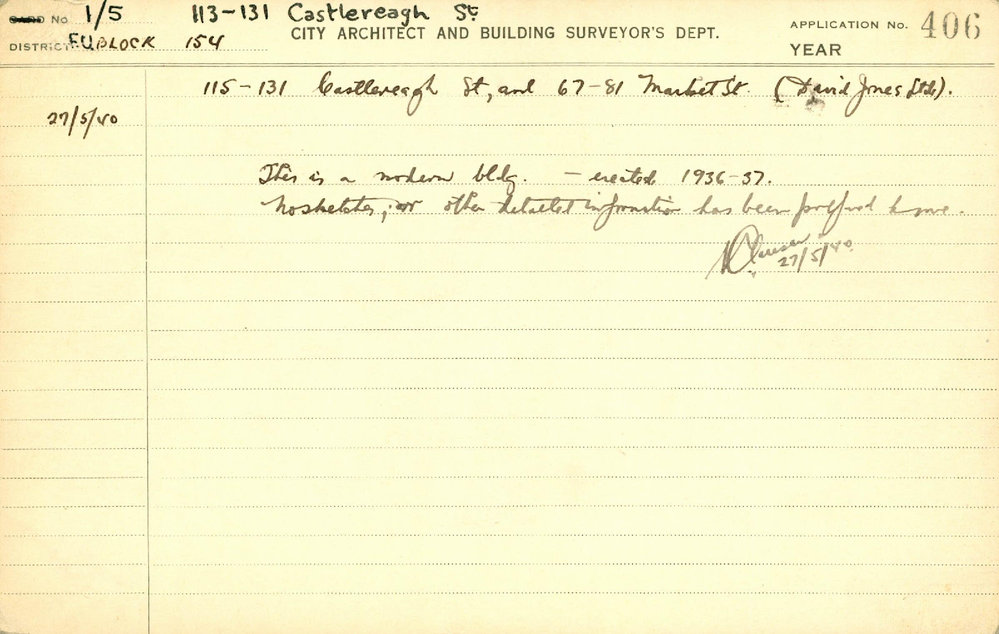 No 1/5 113-131 Castlereagh St
CITY ARCHITECT AND BUILDING SURVEYOR'S DEPT.
APPLICATION No. 406
DISTRICT BLOCK 154
YEAR
115-131 Castlereagh St, and 67-81 Market St (David Jones Ltd).
27/5/40
This is a modern bldg. - erected 1936-37.
No sketches, or other detailed information has been
27/5/40